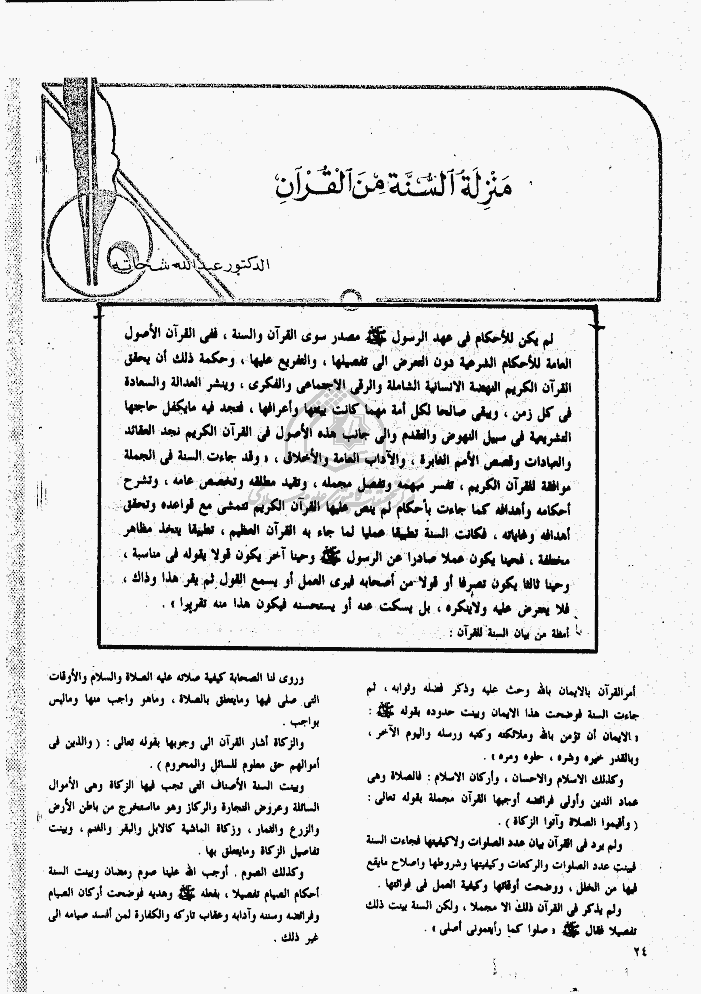 مَنْزِلَةُ السُّنَّة مِنَ الْقُرْآنِ
الدكتور عبدالله شحاته
لم يكن للأحكام فى عهد الرسول ﷺ مصدر سوى القرآن والسنة ، ففى القرآن الأصول
العامة للأحكام الشرعية دون التعرض الى تفصيلها ، والتفريع عليها ، وحكمة ذلك أن يحقق
القرآن الكريم النهضة الانسانية الشاملة والرقي الاجتماعى والفكرى ، وينشر العدالة والسعادة
فى كل زمن ، ويبقى صالحا لكل أمة مهما كانت بيئتها وأعرافها ، فتجد فيه مايكفل حاجتها
التشريعية فى سبيل النهوض والتقدم والى جانب هذه الأصول فى القرآن الكريم نجد العقائد
والعبادات وقصص الأمم الغابرة ، والآداب العامة والأخلاق ، « وقد جاءت السنة فى الجملة
موافقة للقرآن الكريم ، تفسر مبهمه وتفصل مجمله ، وتقيد مطلقه وتخصص عامه ، وتشرح
أحكامه وأهدافه كما جاءت بأحكام لم ينص عليها القرآن الكريم تتمشى مع قواعده وتحقق
أهدافه وغاياته ، فكانت السنة تطبيقا عمليا لما جاء به القرآن العظيم ، تطبيقا يتخذ مظاهر
مختلفة ، فحينا يكون عملا صادرا عن الرسول ﷺ وحينا آخر يكون قولا يقوله فى مناسبة ،
وحينا ثالثا يكون تصرفا أو قولا من أصحابه فيرى العمل أو يسمع القول ثم يقر هذا وذاك ،
فلا يعترض عليه ولاينكره ، بل يسكت عنه أو يستحسنه فيكون هذا منه تقريرا » .
أمثلة من بيان السنة للقرآن :
أمرالقرآن بالايمان بالله وحث عليه وذكر فضله وثوابه ، ثم
جاءت السنة فوضحت هذا الايمان وبينت حدوده بقوله ﷺ :
« الايمان أن تؤمن بالله وملائكته وكتبه ورسله واليوم الآخر ،
وبالقدر خيره وشره ، حلوه ومره » .
وكذلك الاسلام والاحسان ، وأركان الاسلام : فالصلاة وهى
عماد الدين وأولى فرائضه أوجبها القرآن مجملة بقوله تعالى :
( وأقيموا الصلاة وآتوا الزكاة ) .
ولم يرد فى القرآن بيان عدد الصلوات ولاكيفيتها فجاءت السنة
فبينت عدد الصلوات والركعات وكيفيتها وشروطها واصلاح مايقع
فيها من الخلل ، ووضحت أوقاتها وكيفية العمل فى فوائتها .
ولم يذكر فى القرآن ذلك الا مجملا ، ولكن السنة بينت ذلك
تفصيلا فقال ﷺ « صلوا كما رأيتمونى أصلى » .
وروى لنا الصحابة كيفية صلاته عليه الصلاة والسلام والأوقات
التى صلى فيها ومايتعلق بالصلاة ، وماهو واجب منها وماليس
بواجب .
والزكاة أشار القرآن الى وجوبها بقوله تعالى : ( والذين فى
أموالهم حق معلوم للسائل والمحروم ) .
وبينت السنة الأصناف التى تجب فيها الزكاة وهى الأموال
السائلة وعروض التجارة والركاز وهو مااستخرج من باطن الأرض
والزرع والثمار ، وزكاة الماشية كالابل والبقر والغنم ، وبينت
تفاصيل الزكاة ومايتعلق بها .
وكذلك الصوم . أوجب الله علينا صوم رمضان وبينت السنة
أحكام الصيام تفصيلا ، بفعله ﷺ وهديه فوضحت أركان الصيام
وفرائضه وسننه وآدابه وعقاب تاركه والكفارة لمن أفسد صيامه الى
غير ذلك .
٢٤